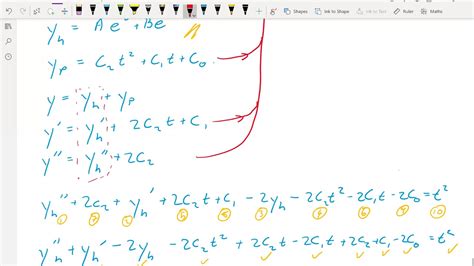 Shapes Ink to Shape Ink to
y_h = Ae + Be
y_p = C₂t² + C₁t + C₀
y = y_h + y_p
y' = y_h' + 2C₂t + C₁
y'' = y_h'' + 2C₂
y_h'' + 2C₂ + y_h' + 2C₂t + C₁ - 2y_h - 2C₂t² - 2C₁t - 2C₀ = t²
y_h'' + y_h' - 2y_h - 2C₂t² + 2C₂t - 2C₁t + 2C₂ + C₁ - 2C₀ = t²